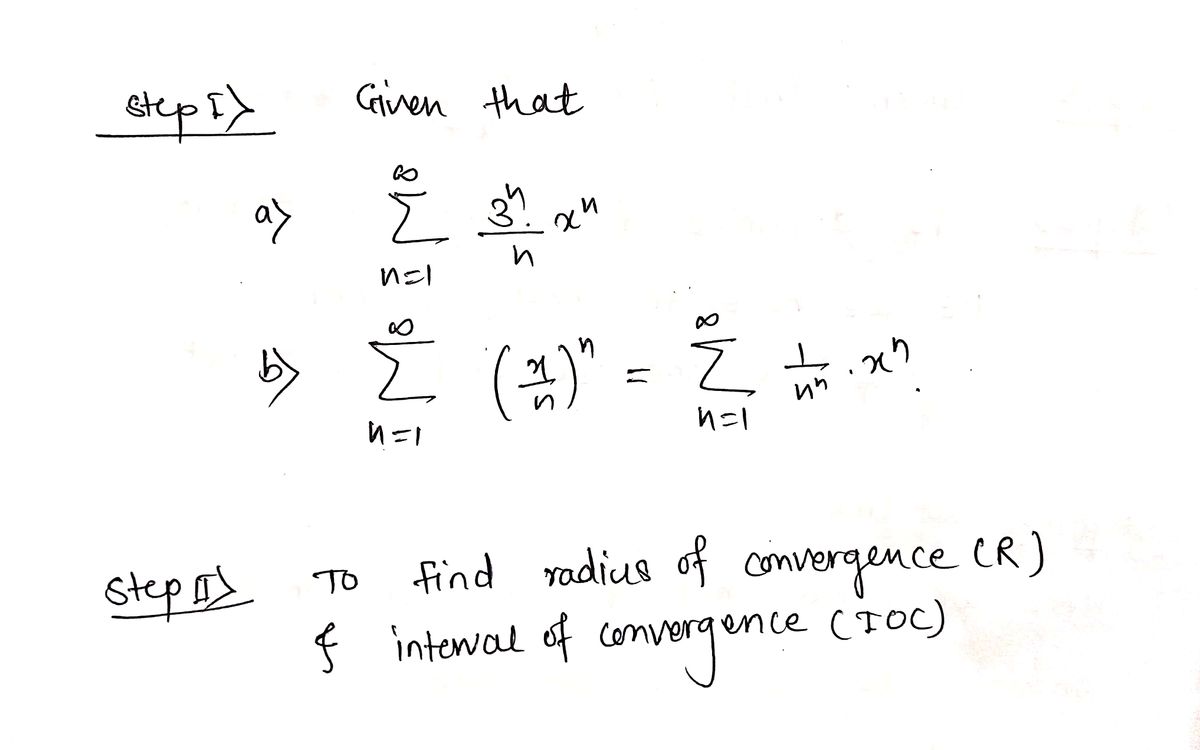 step I> Given that
a> ∞∑n=1 3ⁿ/n · xⁿ
b> ∞∑n=1 (x/n)ⁿ = ∞∑n=1 1/nⁿ · xⁿ.
step II> To find radius of convergence (R)
& interval of convergence (IOC)